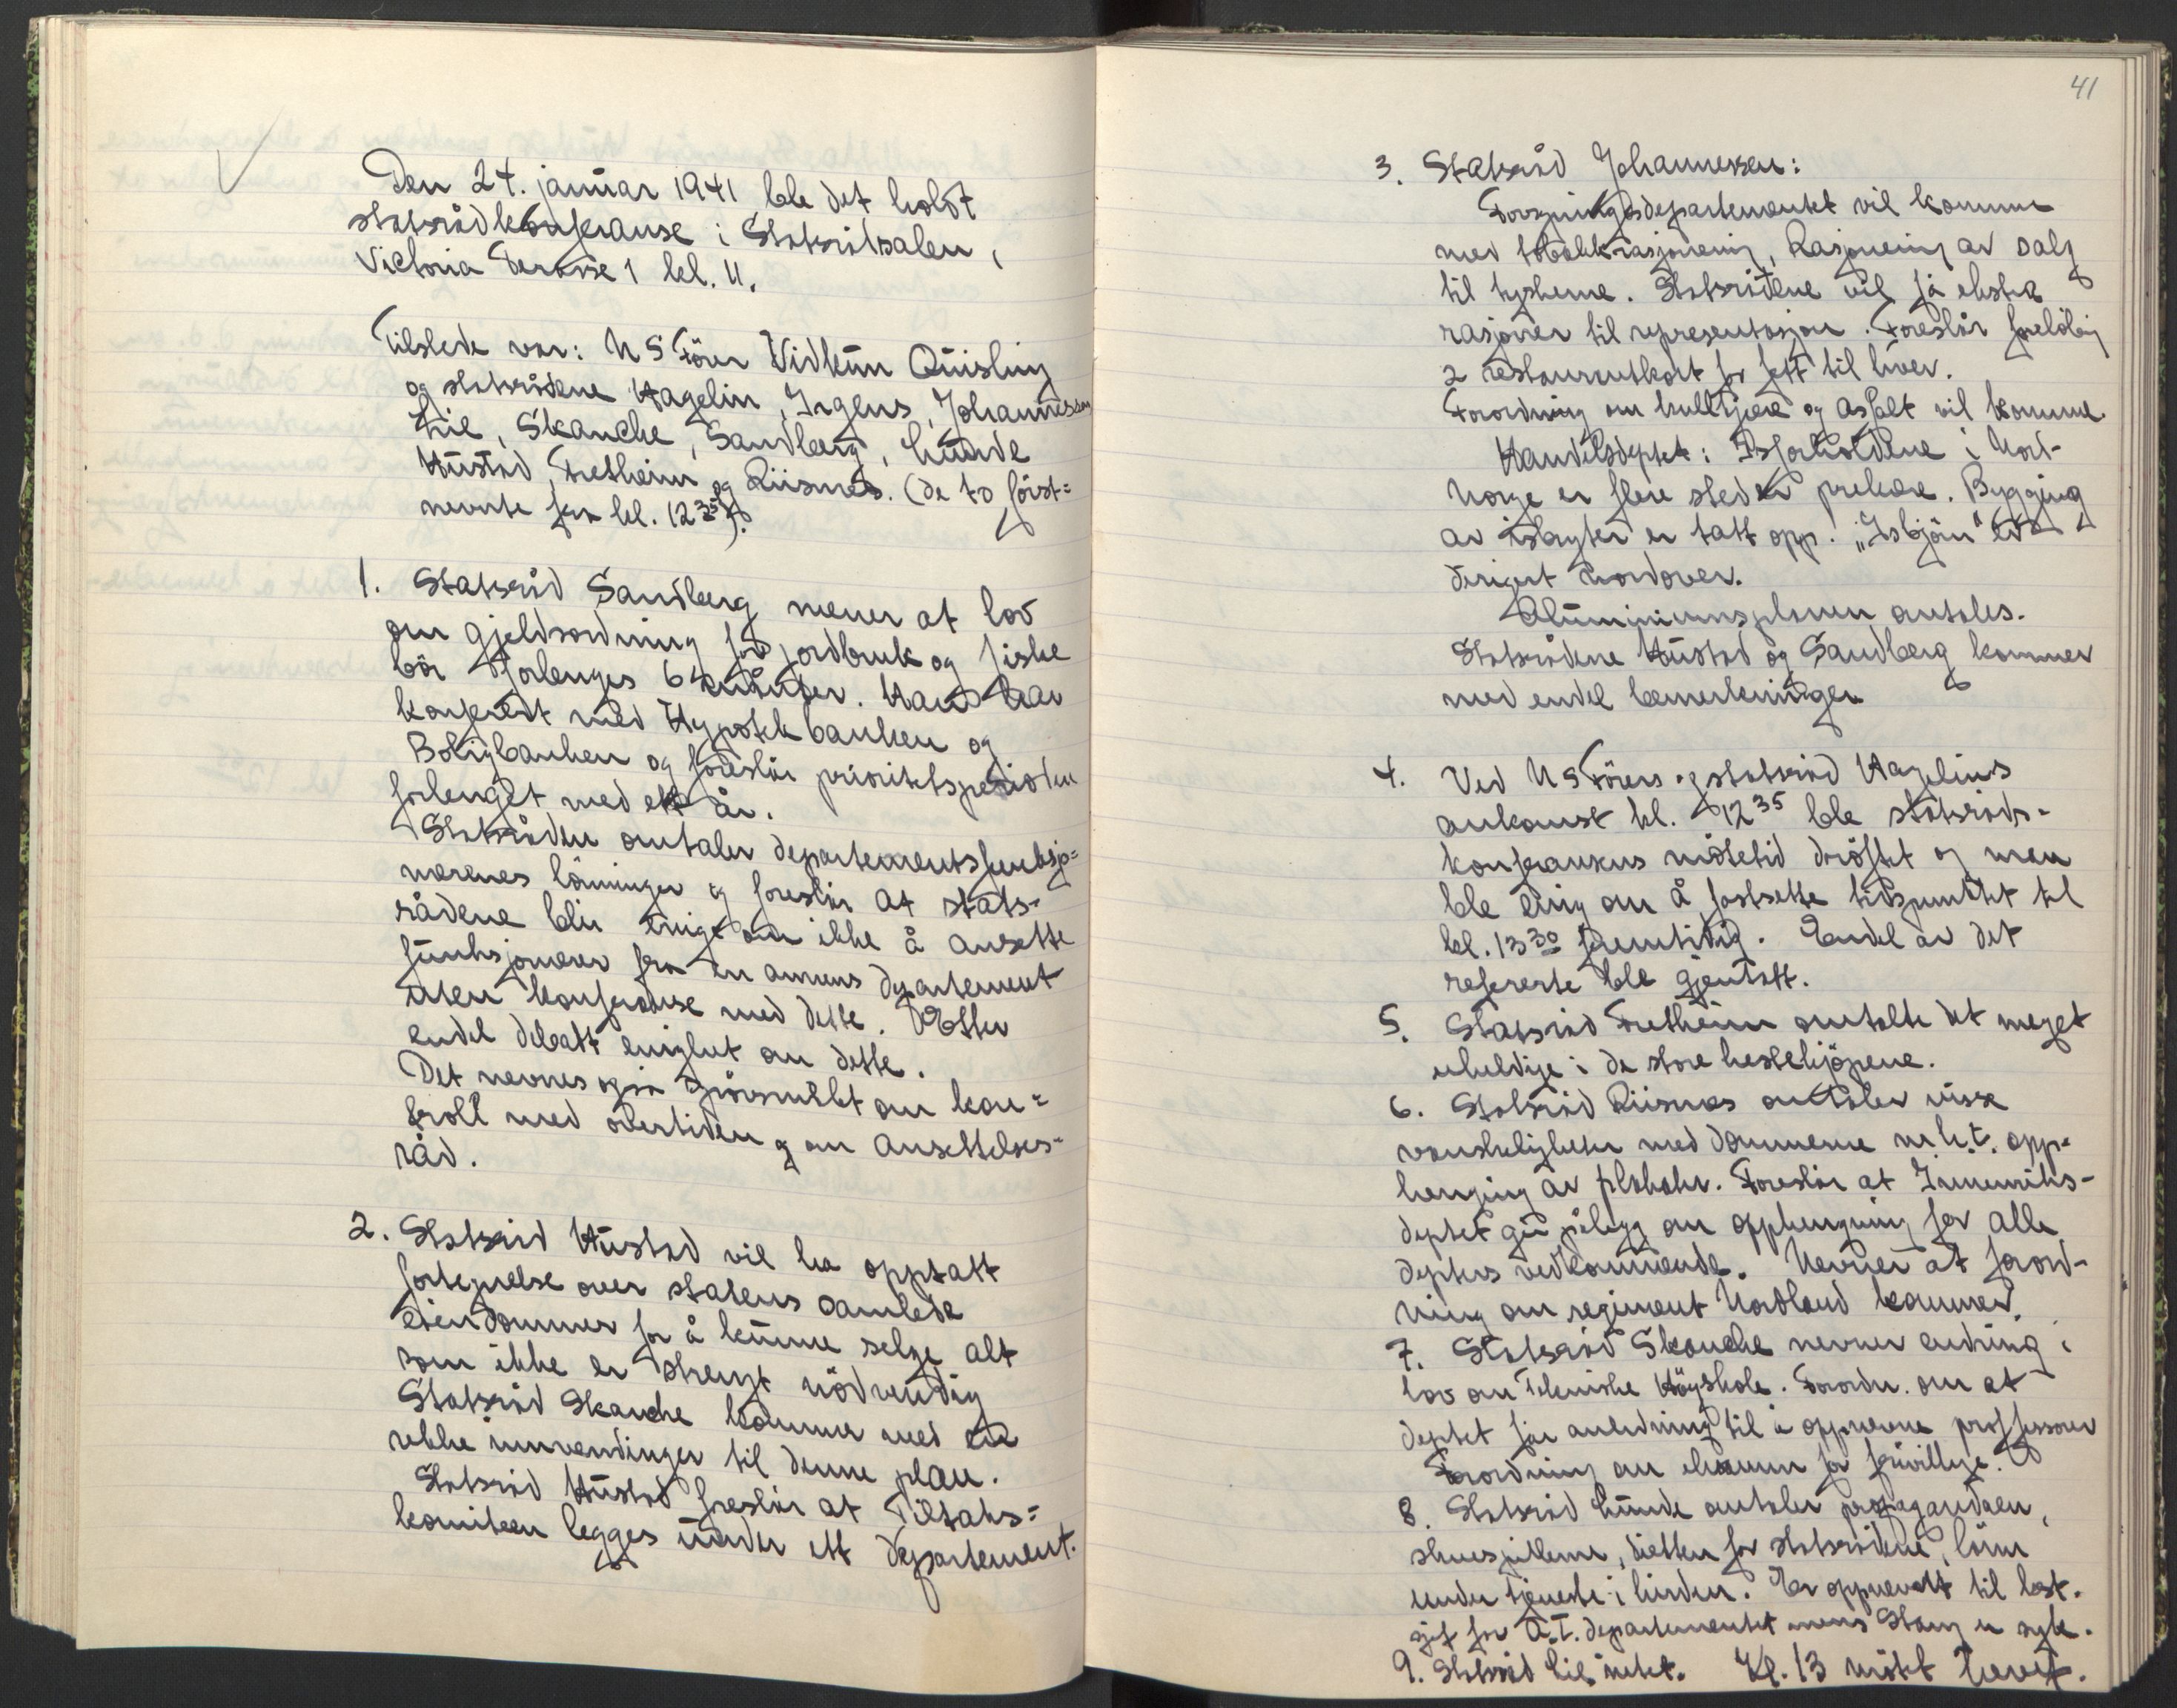 Den 24. januar 1941 ble det holdt
statsrådkonferanse i Statsrådsalen,
Victoria Terasse 1 kl. 11.
Tilstede var: NS Fører Vidkün Qüisling
og statsrådene Hagelin, Irgens, Johannessen
Lie, Skancke, Sandberg, Lünde
Hüstad, Fretheim og Riisnæs. (de to först=
nevnte fra kl. 12 35).
1. Statsråd Sandberg mener at lov
om gjeldsordning for jordbruk og fiske
bör forlenges 6 måneder. Han har
konferert med Hypotekbanken og
Boligbanken og foreslår prioritetsperioden
forlenget med ett år.
Statsråden omtaler departementsfunksjo=
nærenes lönninger og foreslår at stats-
rådene blir enige om ikke å ansette
fünksjonærer fra en annens departement
üten konferanse med dette. Etter
endel debatt enighet om dette.
Det nevnes også spörsmålet om kon=
troll med overtiden og om ansettelses-
råd.
2. Statsråd Hüstad vil ha opptatt
fortegnelse over statens samlede
eiendommer for å künne selge alt
som ikke er strengt nödvendig
Statsråd Skancke kommer med en
rekke innvendinger til denne plan.
Statsråd Hüstad foreslår at Tiltaks=
komiteen legges ünder ett departement.
41
3. Statsråd Johannessen:
Forsyningsdepartementet vil komme
med tobakkrasjonering, Rasjonering av salg
til tyskerne. Statsrådene vil få ekstra
rasjoner til representasjon. Foreslår forelöbig
2 restaurantkort for fett til hver.
Forordning om kulltjære og asfalt vil komme
Handelsdeptet: Isforholdene i Nord-
Norge er flere steder prekære. Bygging
av isbryter er tatt opp. "Isbjön" er
dirigert nordover.
Alüminiumsplanen omtales.
Statsrådene Hüstad og Sandberg kommer
med endel bemerkninger
4. Ved NS Förers og statsråd Hagelins
ankomst kl. 12 35 ble statsråds-
konferansens mötetid dröftet og man
ble enig om å fastsette tidspunktet til
kl. 13 30 fremtidig. Endel av det
refererte ble gjentatt.
5. Statsråd Fretheim omtalte det meget
uheldige i de store hestekjöpene.
6. Statsråd Riisnæs omtaler visse
vanskeligheter med dommerne m.h.t. opp-
henging av plakater. Foreslår at Innenriks-
deptet gir pålegg om opphengning for alle
depters vedkommende. Nevner at forord-
ning om regiment Nordland kommer.
7. Statsråd Skancke nevner endring i
lov om Tekniske Höyskole. Forordn. om at
deptet får anledning til å oppnevne professorer
Forordning om eksamen for frivillige.
8. Statsråd Lünde omtaler propagandaen,
skuespillerne, dietten for statsrådene, lönn
under tjeneste i hirden. Er oppnevnt til best.
for A.I. departementet mens Stang er syk.
9. Statsråd Lie intet. Kl. 13 mötet hevet.